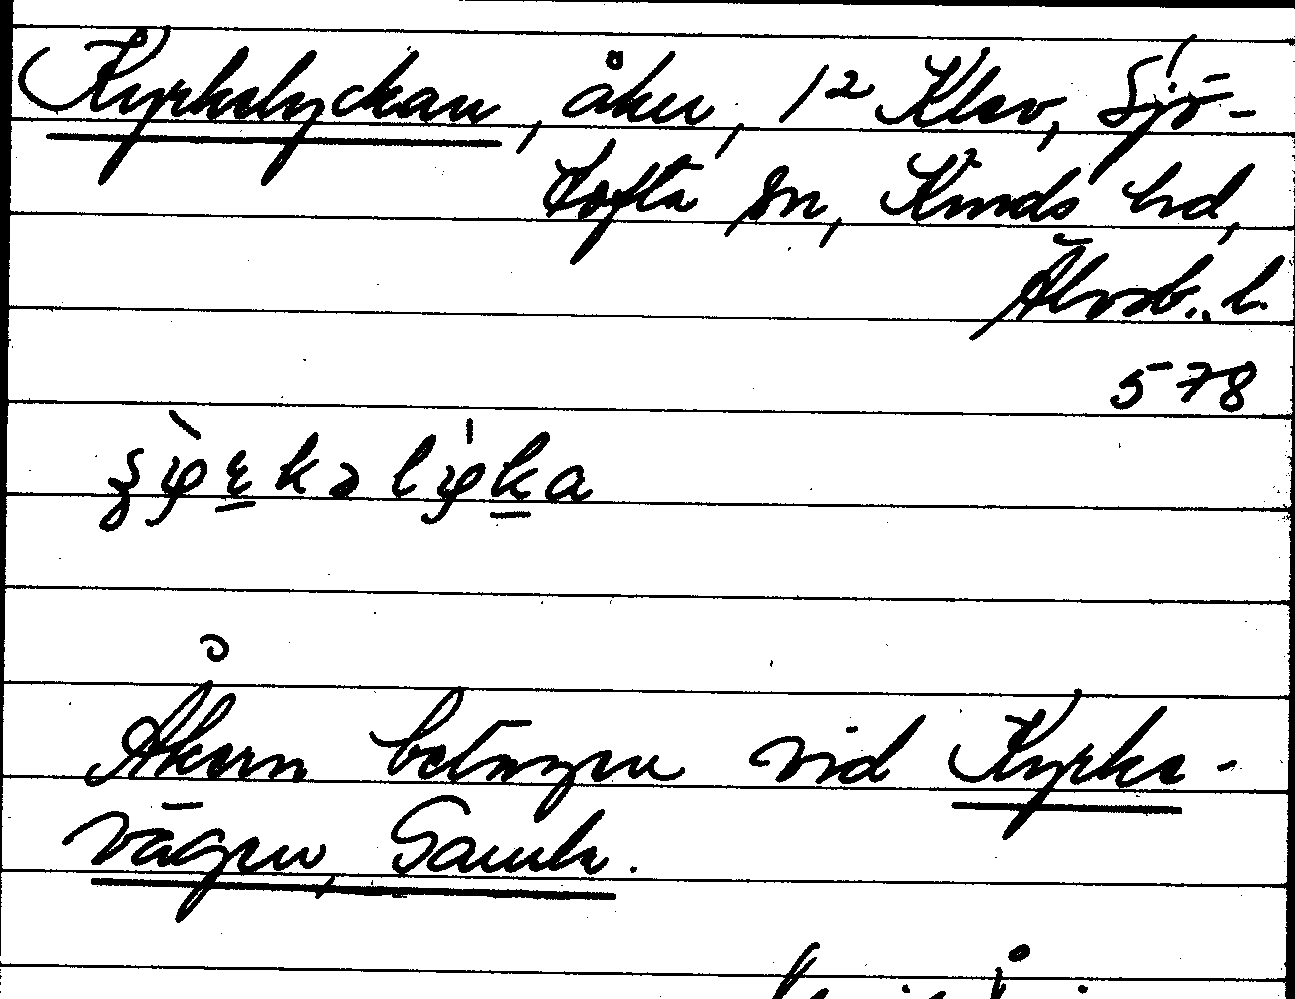 Kyrkelyckan, åker, 1² Klev, Sjö-
tofta sn, Kinds hd,
Älvsb. l.
578
kalyka
Åkern belägen vid Kyrke-
vägen, Gamla.